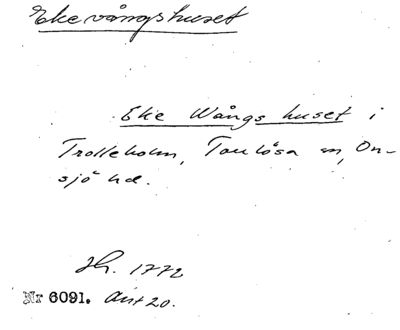 Ekevångshuset
Eke Wångs huset i
Trolleholm, Torrlösa sn, On-
sjö hd.
Jh. 1772
Nr 6091. Ant 20.